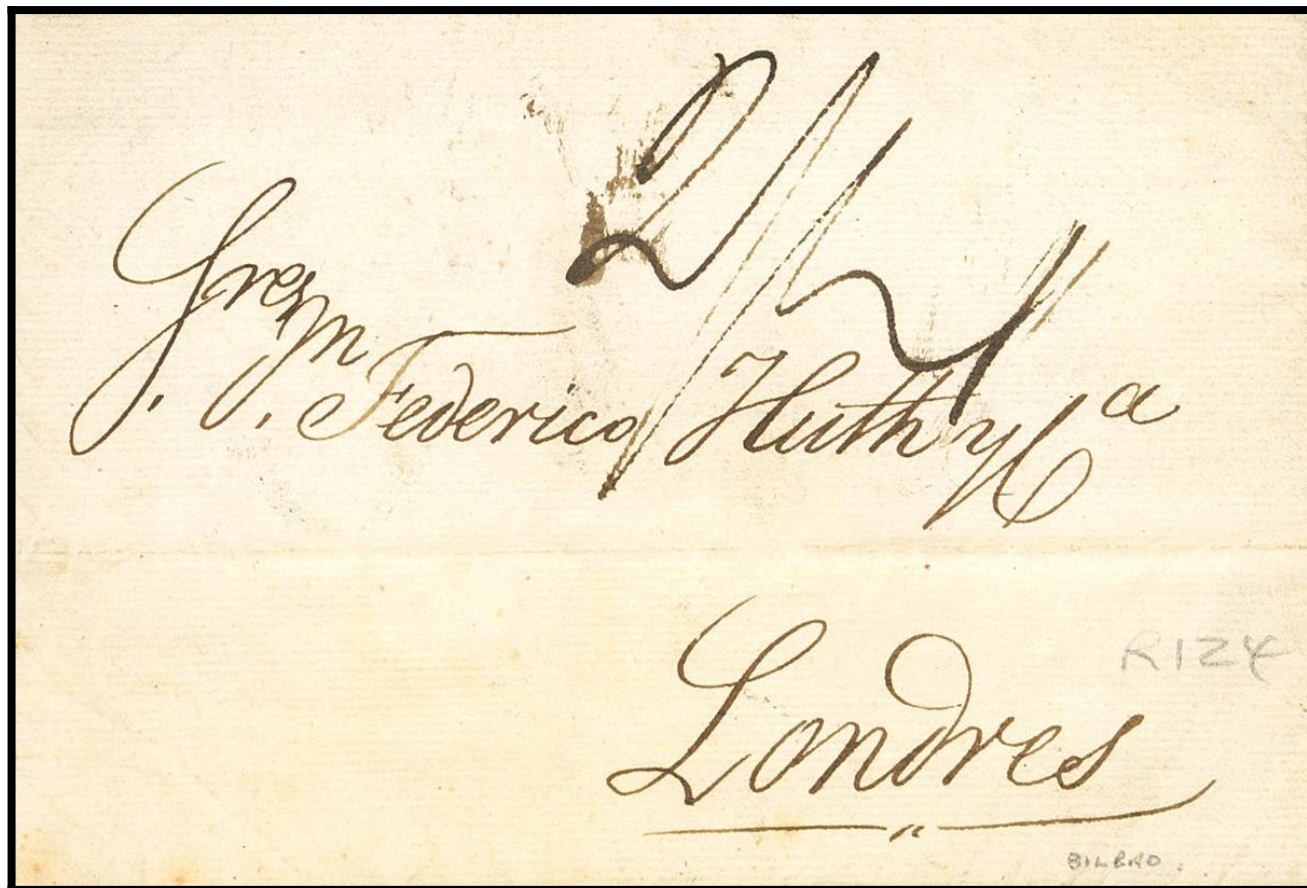 2/2
Sres Dn Federico Huth y Ca
Londres
R124
BILBAO